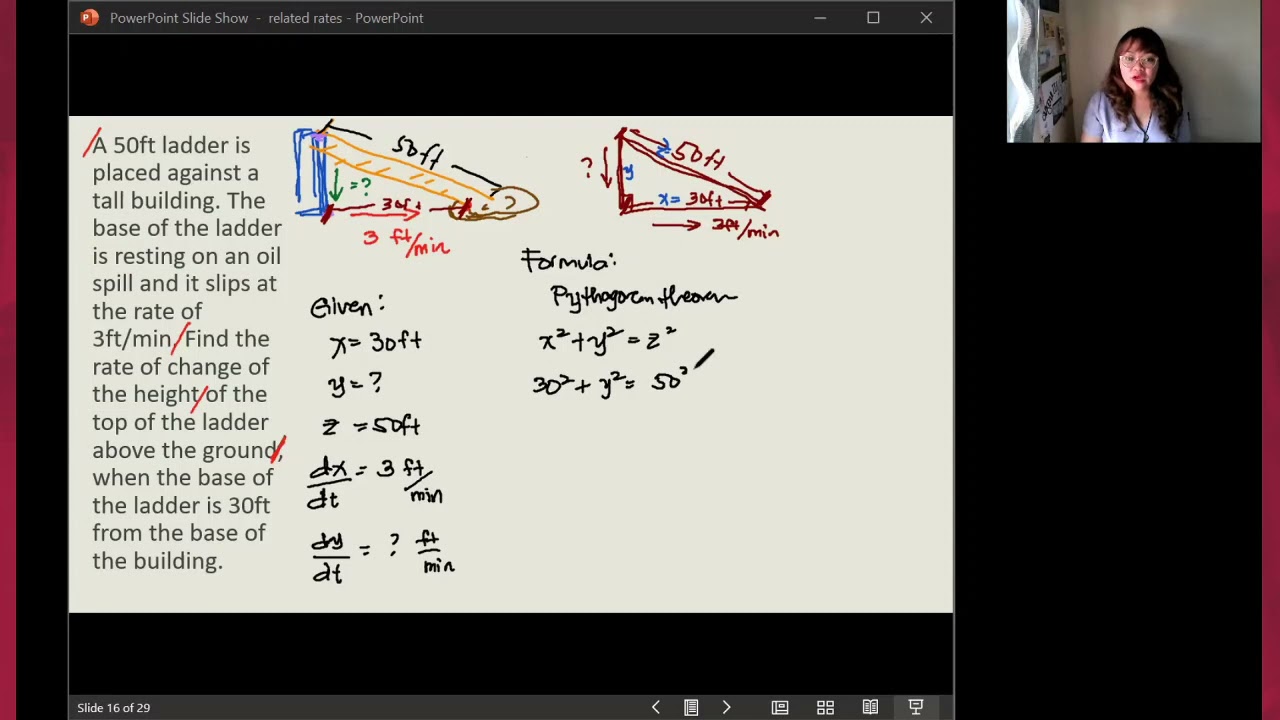 PowerPoint Slide Show - related rates - PowerPoint
A 50ft ladder is
placed against a
tall building. The
base of the ladder
is resting on an oil
spill and it slips at
the rate of
3ft/min. Find the
rate of change of
the height of the
top of the ladder
above the ground,
when the base of
the ladder is 30ft
from the base of
the building.
50ft
=?
30ft
?
3 ft/min
?
z 50ft
y
x = 30ft
3ft/min
Given:
x = 30ft
y = ?
z = 50ft
dx/dt = 3 ft/min
dy/dt = ? ft/min
Formula:
Pythagorean theorem
x² + y² = z²
30² + y² = 50²
Slide 16 of 29